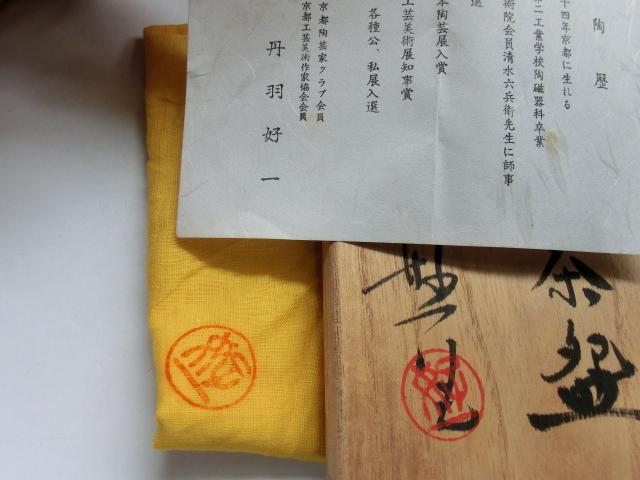 陶歴
十四年京都に生れる
二工業学校陶磁器科卒業
術院会員清水六兵衛先生に師事
選
本陶芸展入賞
工芸美術展知事賞
各種公、私展入選
京都陶芸家クラブ会員
京都工芸美術作家協会会員
丹羽好一
茶盌